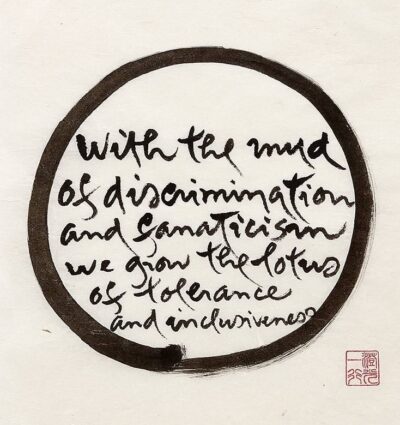 With the mud
of discrimination
and fanaticism
we grow the lotus
of tolerance
and inclusiveness
澄光
一行